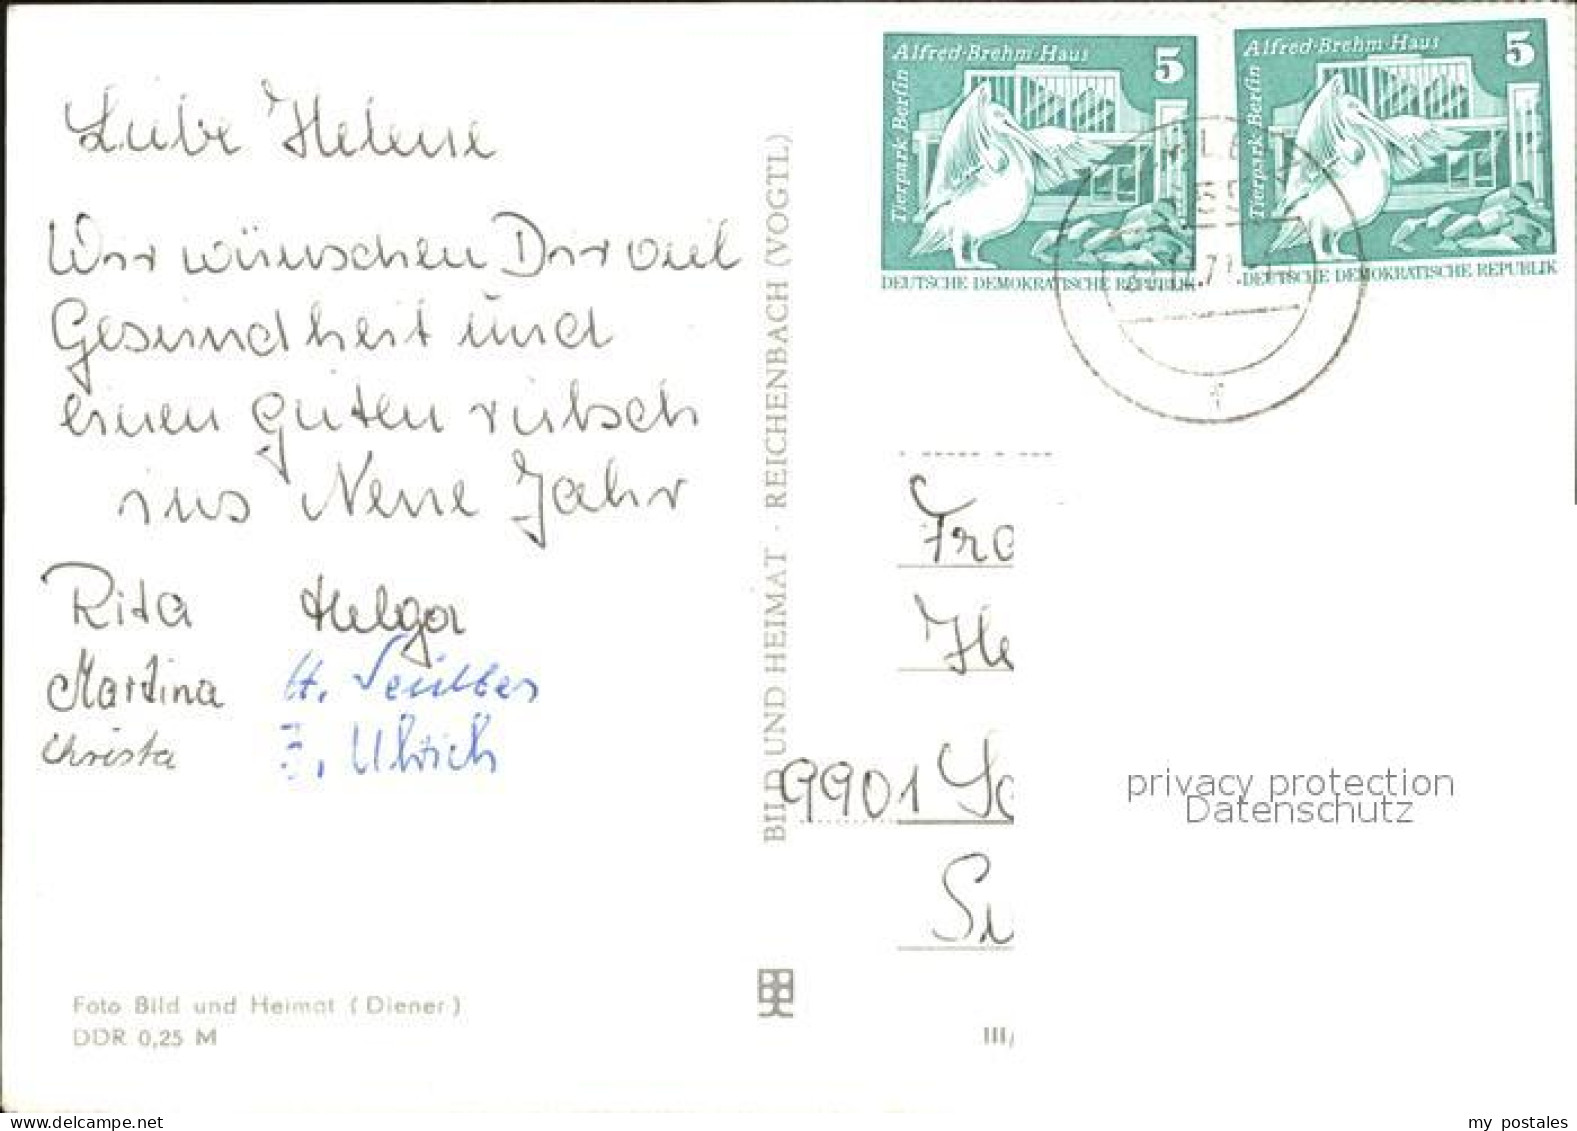 Liebe Helene
Wir wünschen Dir viel
Gesundheit und
einen guten rutsch
ins Neue Jahr
Rita Helga
Martina H.
Christa Ulrich
Foto Bild und Heimat (Diener)
DDR 0,25 M
BILD UND HEIMAT · REICHENBACH (VOGTL)
Alfred-Brehm-Haus 5
Tierpark Berlin
DEUTSCHE DEMOKRATISCHE REPUBLIK
Alfred-Brehm-Haus 5
Tierpark Berlin
DEUTSCHE DEMOKRATISCHE REPUBLIK
Fra
He
9901
III/
privacy protection
Datenschutz
my postales